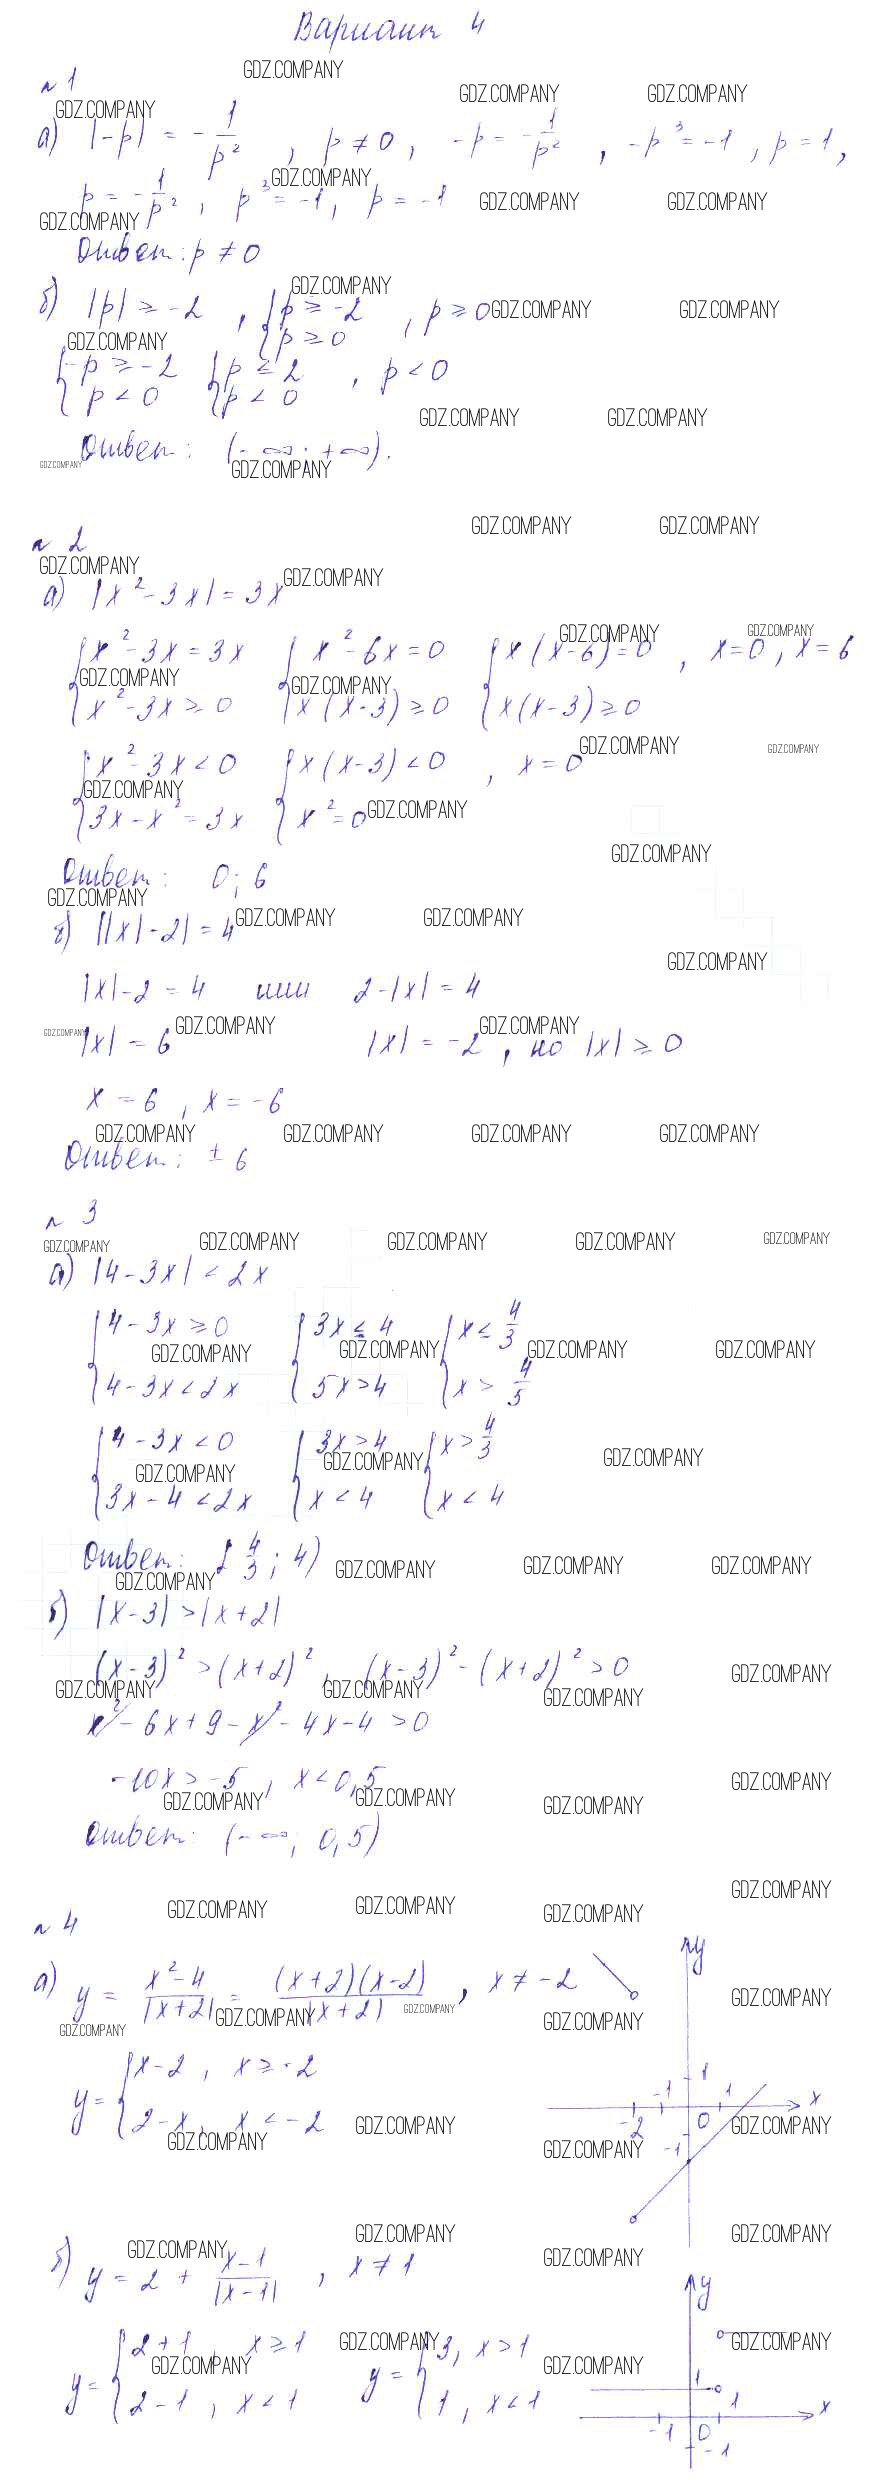 Вариант 4
№ 1
а) |-p| = - 1/p², p ≠ 0, -p = - 1/p², -p³ = -1, p = 1,
p = - 1/p², p³ = -1, p = -1
Ответ: p ≠ 0
б) |p| ≥ -2, { p ≥ -2 ; p ≥ 0 , p ≥ 0
{ -p ≥ -2 ; p < 0 { p ≤ 2 ; p < 0 , p < 0
Ответ: (-∞; +∞).
№ 2
а) |x² - 3x| = 3x
{ x² - 3x = 3x ; x² - 3x ≥ 0 { x² - 6x = 0 ; x(x-3) ≥ 0 { x(x-6) = 0 ; x(x-3) ≥ 0 , x = 0, x = 6
{ x² - 3x < 0 ; 3x - x² = 3x { x(x-3) < 0 ; x² = 0 , x = 0
Ответ: 0; 6
б) ||x| - 2| = 4
|x| - 2 = 4 или 2 - |x| = 4
|x| = 6 |x| = -2, но |x| ≥ 0
x = 6, x = -6
Ответ: ± 6
№ 3
а) |4 - 3x| < 2x
{ 4 - 3x ≥ 0 ; 4 - 3x < 2x { 3x ≤ 4 ; 5x > 4 { x ≤ 4/3 ; x > 4/5
{ 4 - 3x < 0 ; 3x - 4 < 2x { 3x > 4 ; x < 4 { x > 4/3 ; x < 4
Ответ: [4/3; 4)
б) |x - 3| > |x + 2|
(x-3)² > (x+2)², (x-3)² - (x+2)² > 0
x² - 6x + 9 - x² - 4x - 4 > 0
-10x > -5, x < 0,5
Ответ: (-∞; 0,5)
№ 4
а) y = x²-4/|x+2| = (x+2)(x-2)/|x+2|, x ≠ -2
y = { x-2, x ≥ -2 ; 2-x, x < -2
y
1
-1 1 x
-2 0
-1
б) y = 2 + x-1/|x-1|, x ≠ 1
y = { 2+1, x ≥ 1 ; 2-1, x < 1 y = { 3, x > 1 ; 1, x < 1
y
1
1 x
-1 0
-1
GDZ.COMPANY